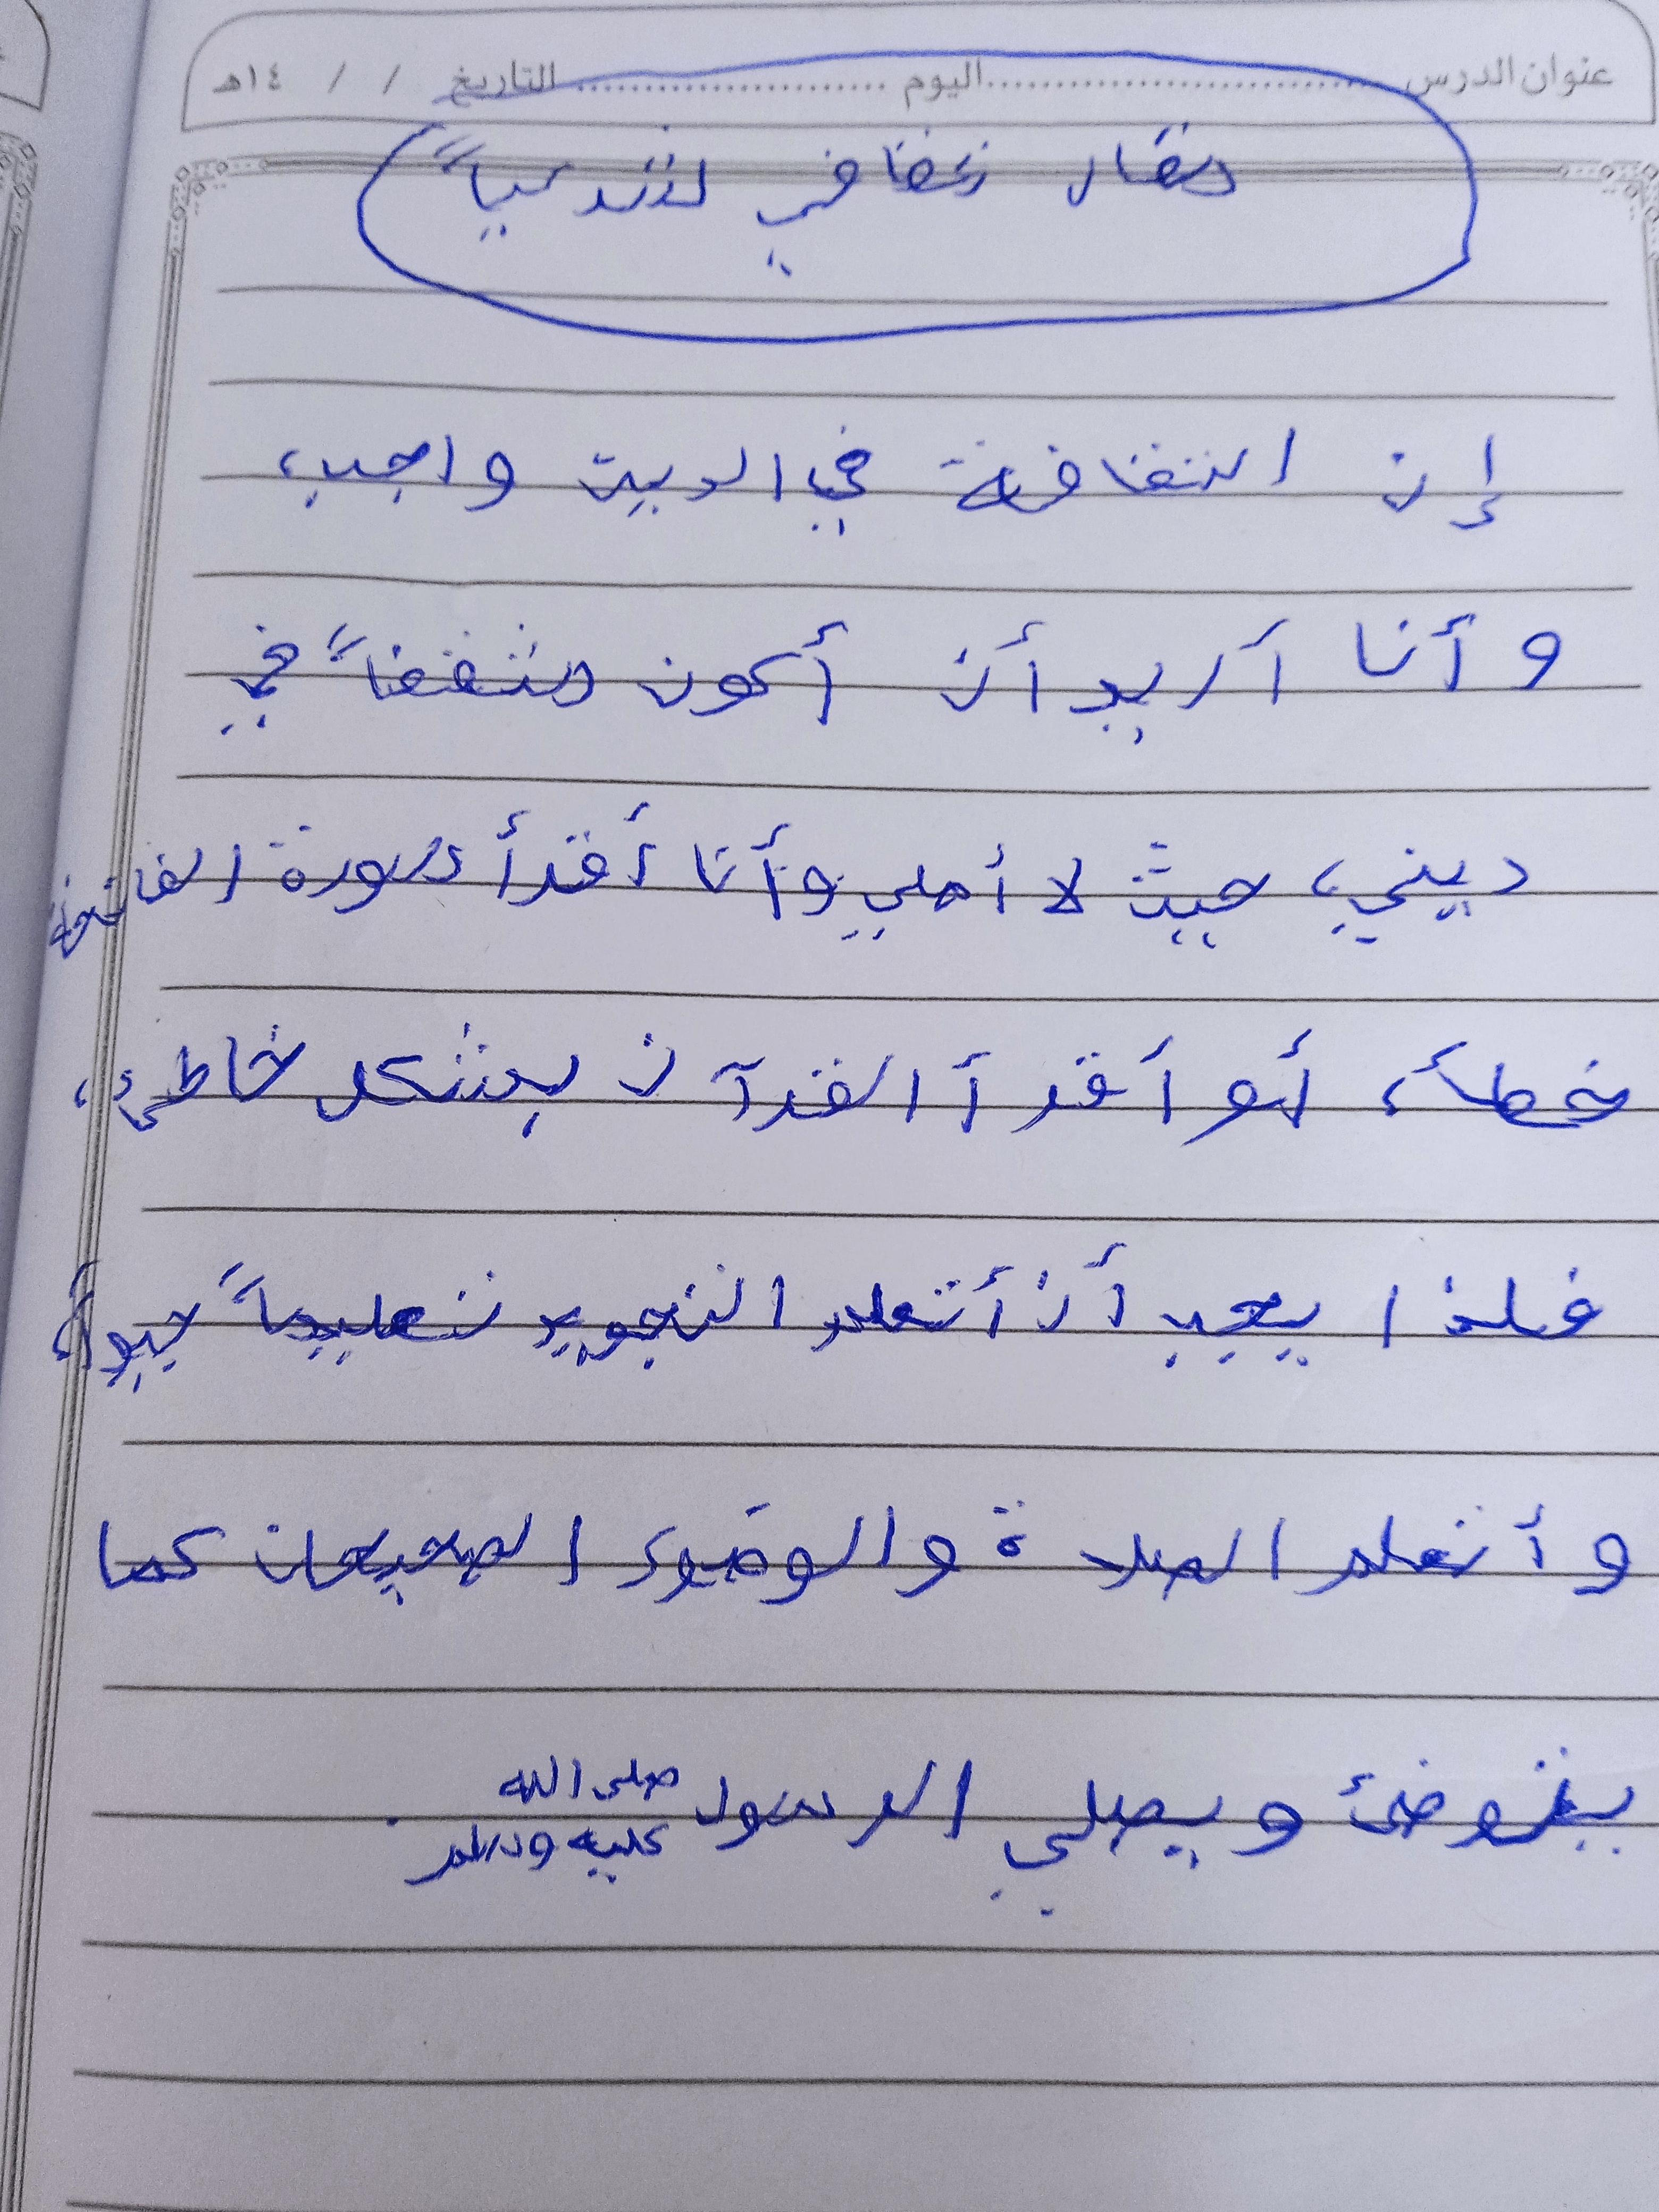 عنوان الدرس .......................... اليوم .................... التاريخ / / ١٤هـ
مقال ثقافي
إن الثقافة في الدين واجب،
وأنا أريد أن أكون مثقفاً في
ديني، حيث لا أصلي وأنا أقرأ سورة الفاتحة
خطأ، أو أقرأ القرآن بشكل خاطئ،
فلذا يجب أن أتعلم التجويد تعليماً جيداً،
وأتعلم الصلاة والوضوء الصحيحان كما
يتوضئ ويصلي الرسول صلى الله عليه وسلم.